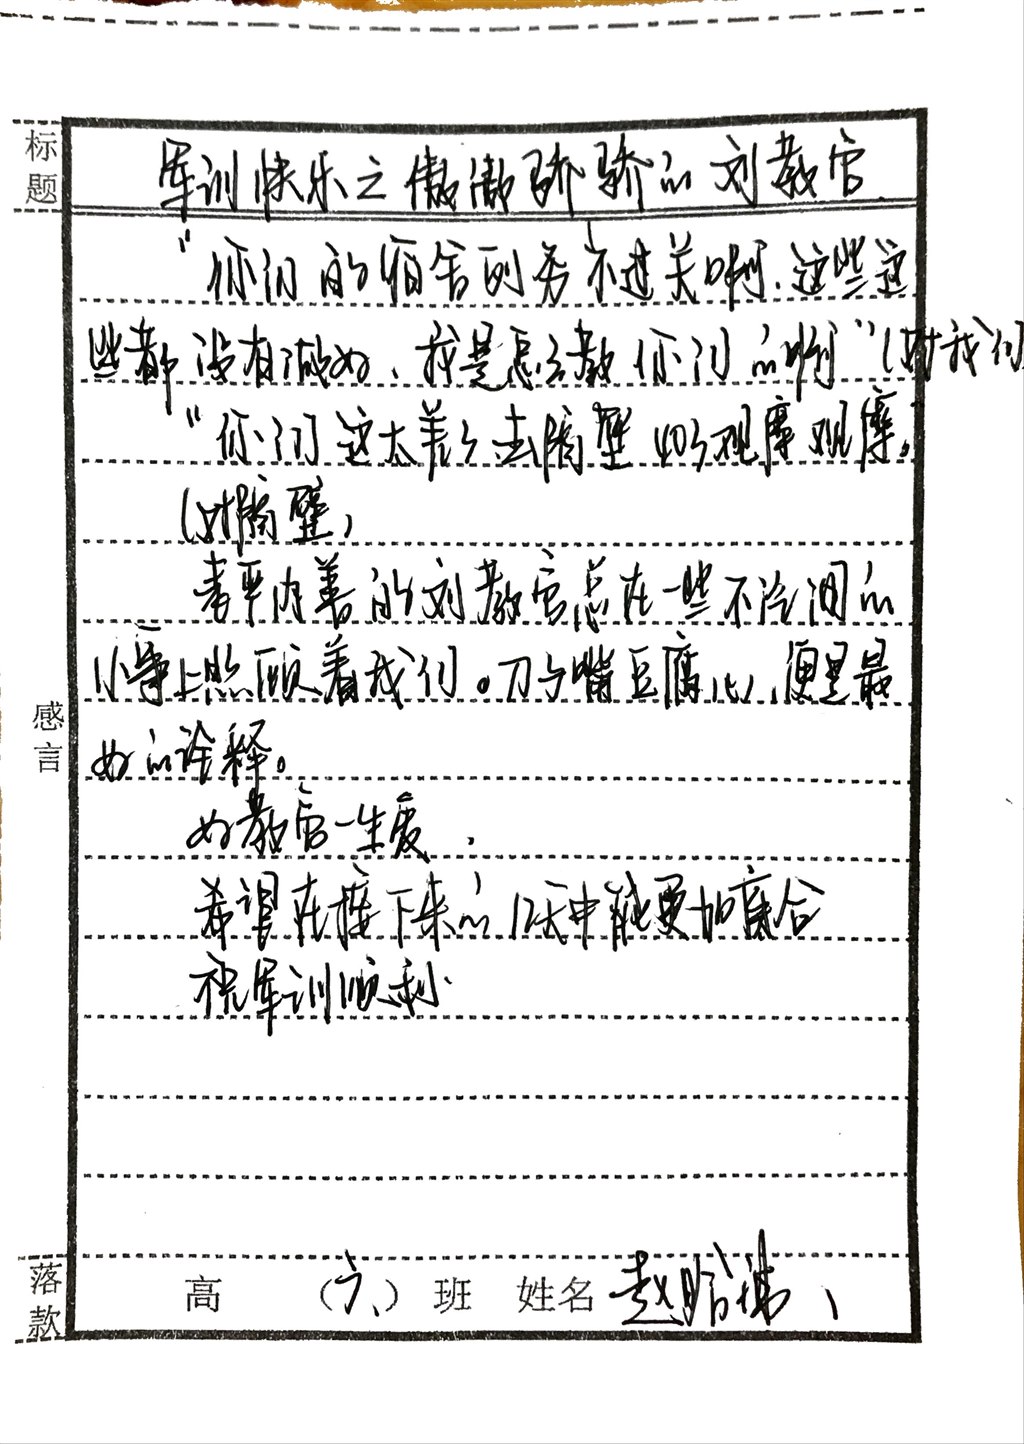 标题
军训快乐之傲傲骄骄的刘教官
"你们的宿舍内务不过关啊、这些这
些都没有做好、我是怎么教你们的啊"(对我们
"你们这太差了去隔壁403观摩观摩。
(对隔壁)
表严内善的刘教官总在一些不经间的
小事上照顾着我们。刀子嘴豆腐心,便是最
好的诠释。
感言
好教官一生爱.
希望在接下来的12天中能更加集合
祝军训顺利
落款
高 (六) 班 姓名 赵